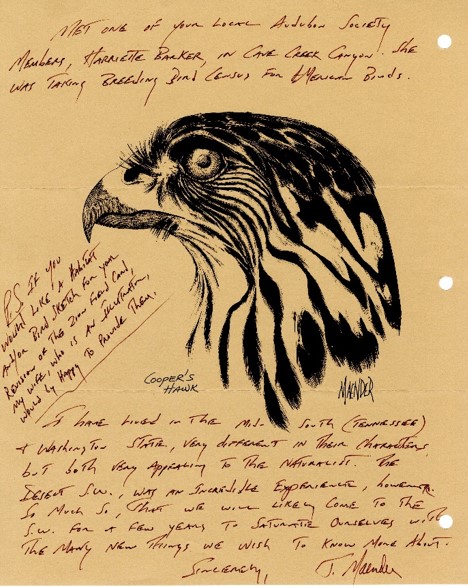 Met one of your local Audubon Society
Members, Harriette Barker, in Cave Creek Canyon. She
was taking Breeding Bird Census for American Birds.
P.S. If you
would like a habitat
and/or bird sketch for your
revision of the Zion Field Card,
my wife, who is an illustrator,
would by happy to provide them.
Cooper's
Hawk
Maender
I have lived in the Mid-South (Tennessee)
+ Washington State, very different in their characters,
but both very appealing to the naturalist. The
Desert S.W., was an incredible experience, however.
So much so, that we will likely come to the
S.W. for a few years to saturate ourselves with
the many new things we wish to know more about.
Sincerely, J. Maender